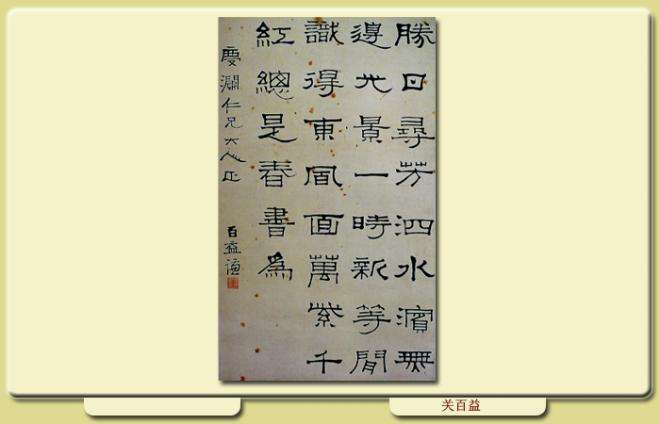 勝日尋芳泗水濱無
邊光景一時新等閒
識得東風面萬紫千
紅總是春書為
慶瀾仁兄大人正
百益
关百益